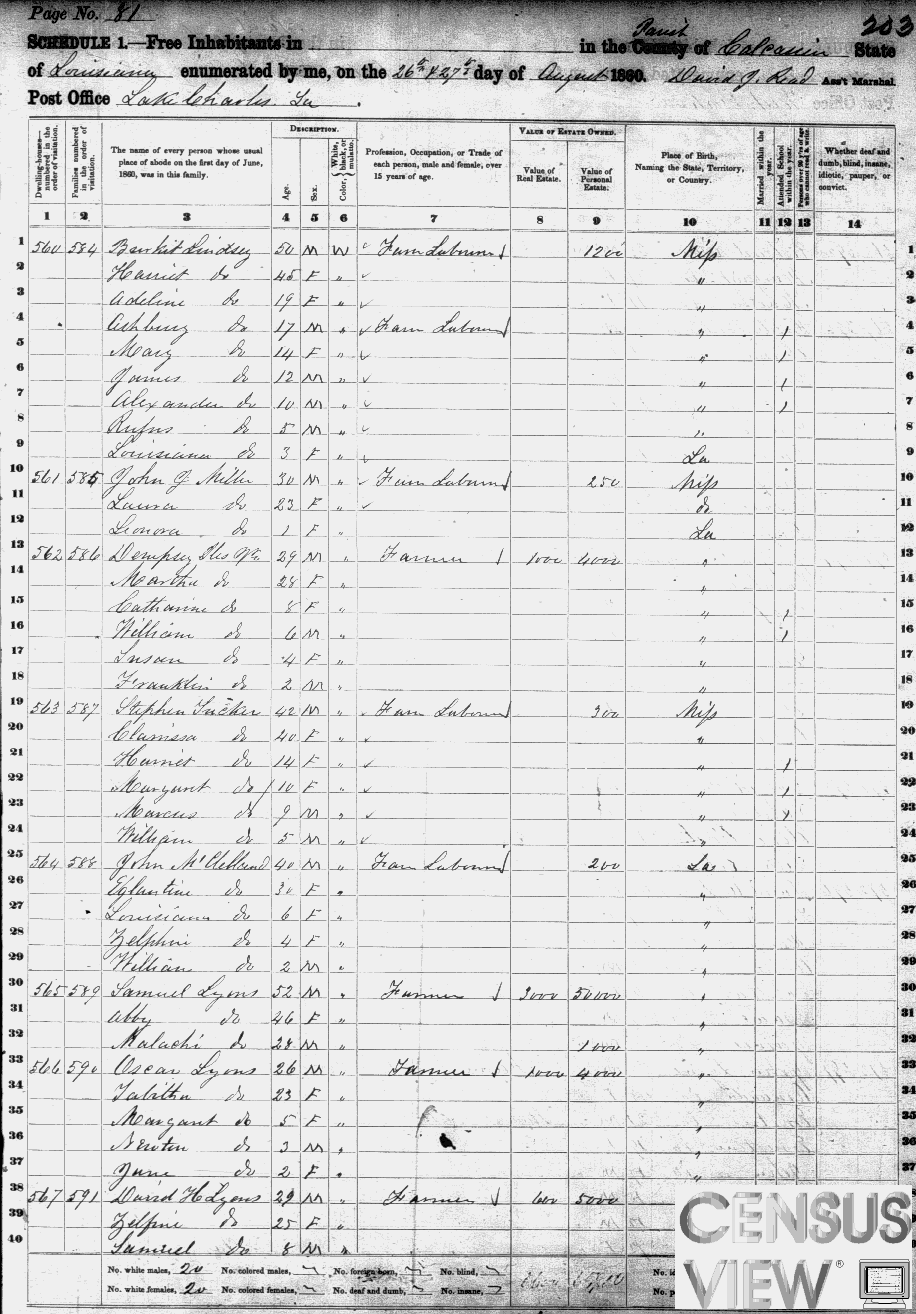 Page No. 81
203
SCHEDULE 1.—Free Inhabitants in in the County Parish of Calcasieu State
of Louisiana enumerated by me, on the 26th & 27th day of August 1860. David J. Read Ass't Marshal.
Post Office Lake Charles La.
DESCRIPTION. VALUE OF ESTATE OWNED.
Dwelling-houses—numbered in the order of visitation.
Families numbered in the order of visitation.
The name of every person whose usual place of abode on the first day of June, 1860, was in this family.
Age.
Sex.
Color, White, black, or mulatto.
Profession, Occupation, or Trade of each person, male and female, over 15 years of age.
Value of Real Estate.
Value of Personal Estate.
Place of Birth, Naming the State, Territory, or Country.
Married within the year.
Attended School within the year.
Persons over 20 y'rs of age who cannot read & write.
Whether deaf and dumb, blind, insane, idiotic, pauper, or convict.
1 2 3 4 5 6 7 8 9 10 11 12 13 14
1 560 584 Lindsey 50 M W Farm Labourer 1200 Miss 1
2 Harriet do 45 F " " 2
3 Adeline do 19 F " " 3
4 Ashbury do 17 M " Farm Labourer " 1 4
5 Mary do 14 F " " 1 5
6 James do 12 M " " 1 6
7 Alexander do 10 M " " 1 7
8 Rufus do 5 M " " 8
9 Louisiana do 3 F " La 9
10 561 585 John J Miller 30 M " Farm Labourer 250 Miss 10
11 Laura do 23 F " do 11
12 Leonora do 1 F " La 12
13 562 586 Dempsey Iles 29 M " Farmer 1000 4000 " 13
14 Martha do 28 F " " 14
15 Catharine do 8 F " " 1 15
16 William do 6 M " " 1 16
17 Susan do 4 F " " 17
18 Franklin do 2 M " " 18
19 563 587 Stephen Tucker 42 M " Farm Labourer 300 Miss 19
20 Clarissa do 40 F " " 20
21 Harriet do 14 F " " 1 21
22 Margaret do 10 F " " 1 22
23 Marcus do 9 M " " 1 23
24 William do 5 M " " 24
25 564 588 John McClelland 40 M " Farm Labourer 200 La 25
26 Eglantine do 30 F " " 26
27 Louisiana do 6 F " " 27
28 Zelphine do 4 F " " 28
29 William do 2 M " " 29
30 565 589 Samuel Lyons 52 M " Farmer 3000 50000 " 30
31 Abby do 46 F " " 31
32 Malachi do 28 M " 1000 " 32
33 566 590 Oscar Lyons 26 M " Farmer 1000 4000 " 33
34 Tabitha do 23 F " " 34
35 Margaret do 5 F " " 35
36 Newton do 3 M " " 36
37 Jane do 2 F " " 37
38 567 591 David H Lyons 29 M " Farmer 600 5000
39 Zelphine do 25 F "
40 Samuel do 8 M "
No. white males, 20 No. colored males, No. foreign born, No. blind,
No. white females, 20 No. colored females, No. deaf and dumb, No. insane,
CENSUS
VIEW®